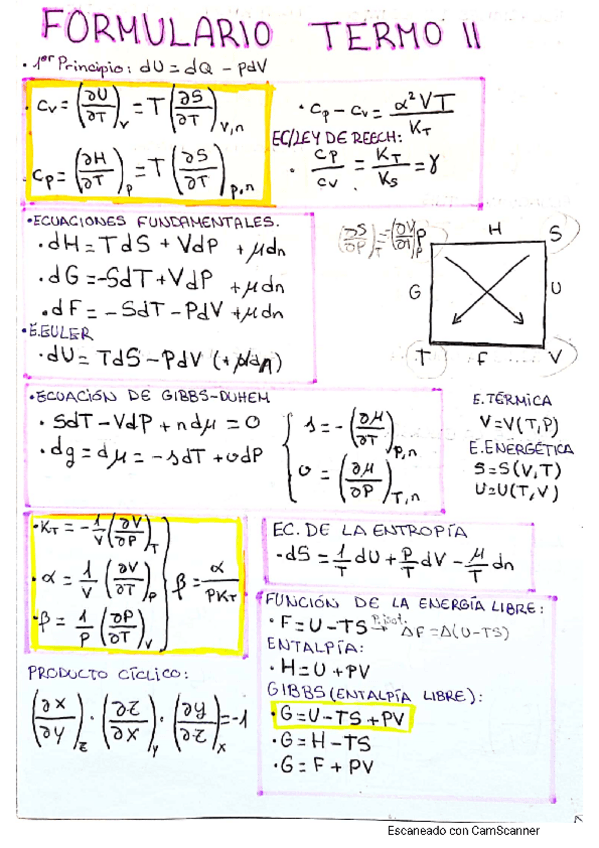 FORMULARIO TERMO II
· 1er Principio: dU = dQ - PdV
Cv = (∂U/∂T)_V = T (∂S/∂T)_V,n
· Cp = (∂H/∂T)_P = T (∂S/∂T)_P,n
· Cp - Cv = α²VT/K_T
EC/LEY DE REECH:
· Cp/Cv = K_T/K_S = γ
· ECUACIONES FUNDAMENTALES.
· dH = TdS + VdP + μdn
· dG = -SdT + VdP + μdn
· dF = -SdT - PdV + μdn
· E.EULER
· dU = TdS - PdV (+ μdn)
(∂S/∂P)_T = (∂V/∂T)_P
H S
G U
T F V
· ECUACIÓN DE GIBBS-DUHEM
· SdT - VdP + ndμ = 0
· dg = dμ = -sdT + vdP
s = -(∂μ/∂T)_P,n
v = (∂μ/∂P)_T,n
E.TÉRMICA
V = V(T,P)
E.ENERGÉTICA
S = S(V,T)
U = U(T,V)
· K_T = -1/V (∂V/∂P)_T
· α = 1/V (∂V/∂T)_P
· β = 1/P (∂P/∂T)_V
β = α/PK_T
EC. DE LA ENTROPÍA
· dS = 1/T dU + P/T dV - μ/T dn
FUNCIÓN DE LA ENERGÍA LIBRE:
· F = U - TS → ΔF = Δ(U-TS)
ENTALPÍA:
· H = U + PV
GIBBS (ENTALPÍA LIBRE):
· G = U - TS + PV
· G = H - TS
· G = F + PV
PRODUCTO CÍCLICO:
(∂x/∂y)_z · (∂z/∂x)_y · (∂y/∂z)_x = -1
Escaneado con CamScanner